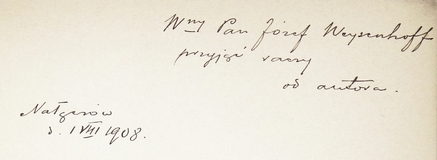 Wny Pan Józef Weyssenhoff
przyjąć raczy
od autora.
Nałęczów
d. 1 VIII 1908.